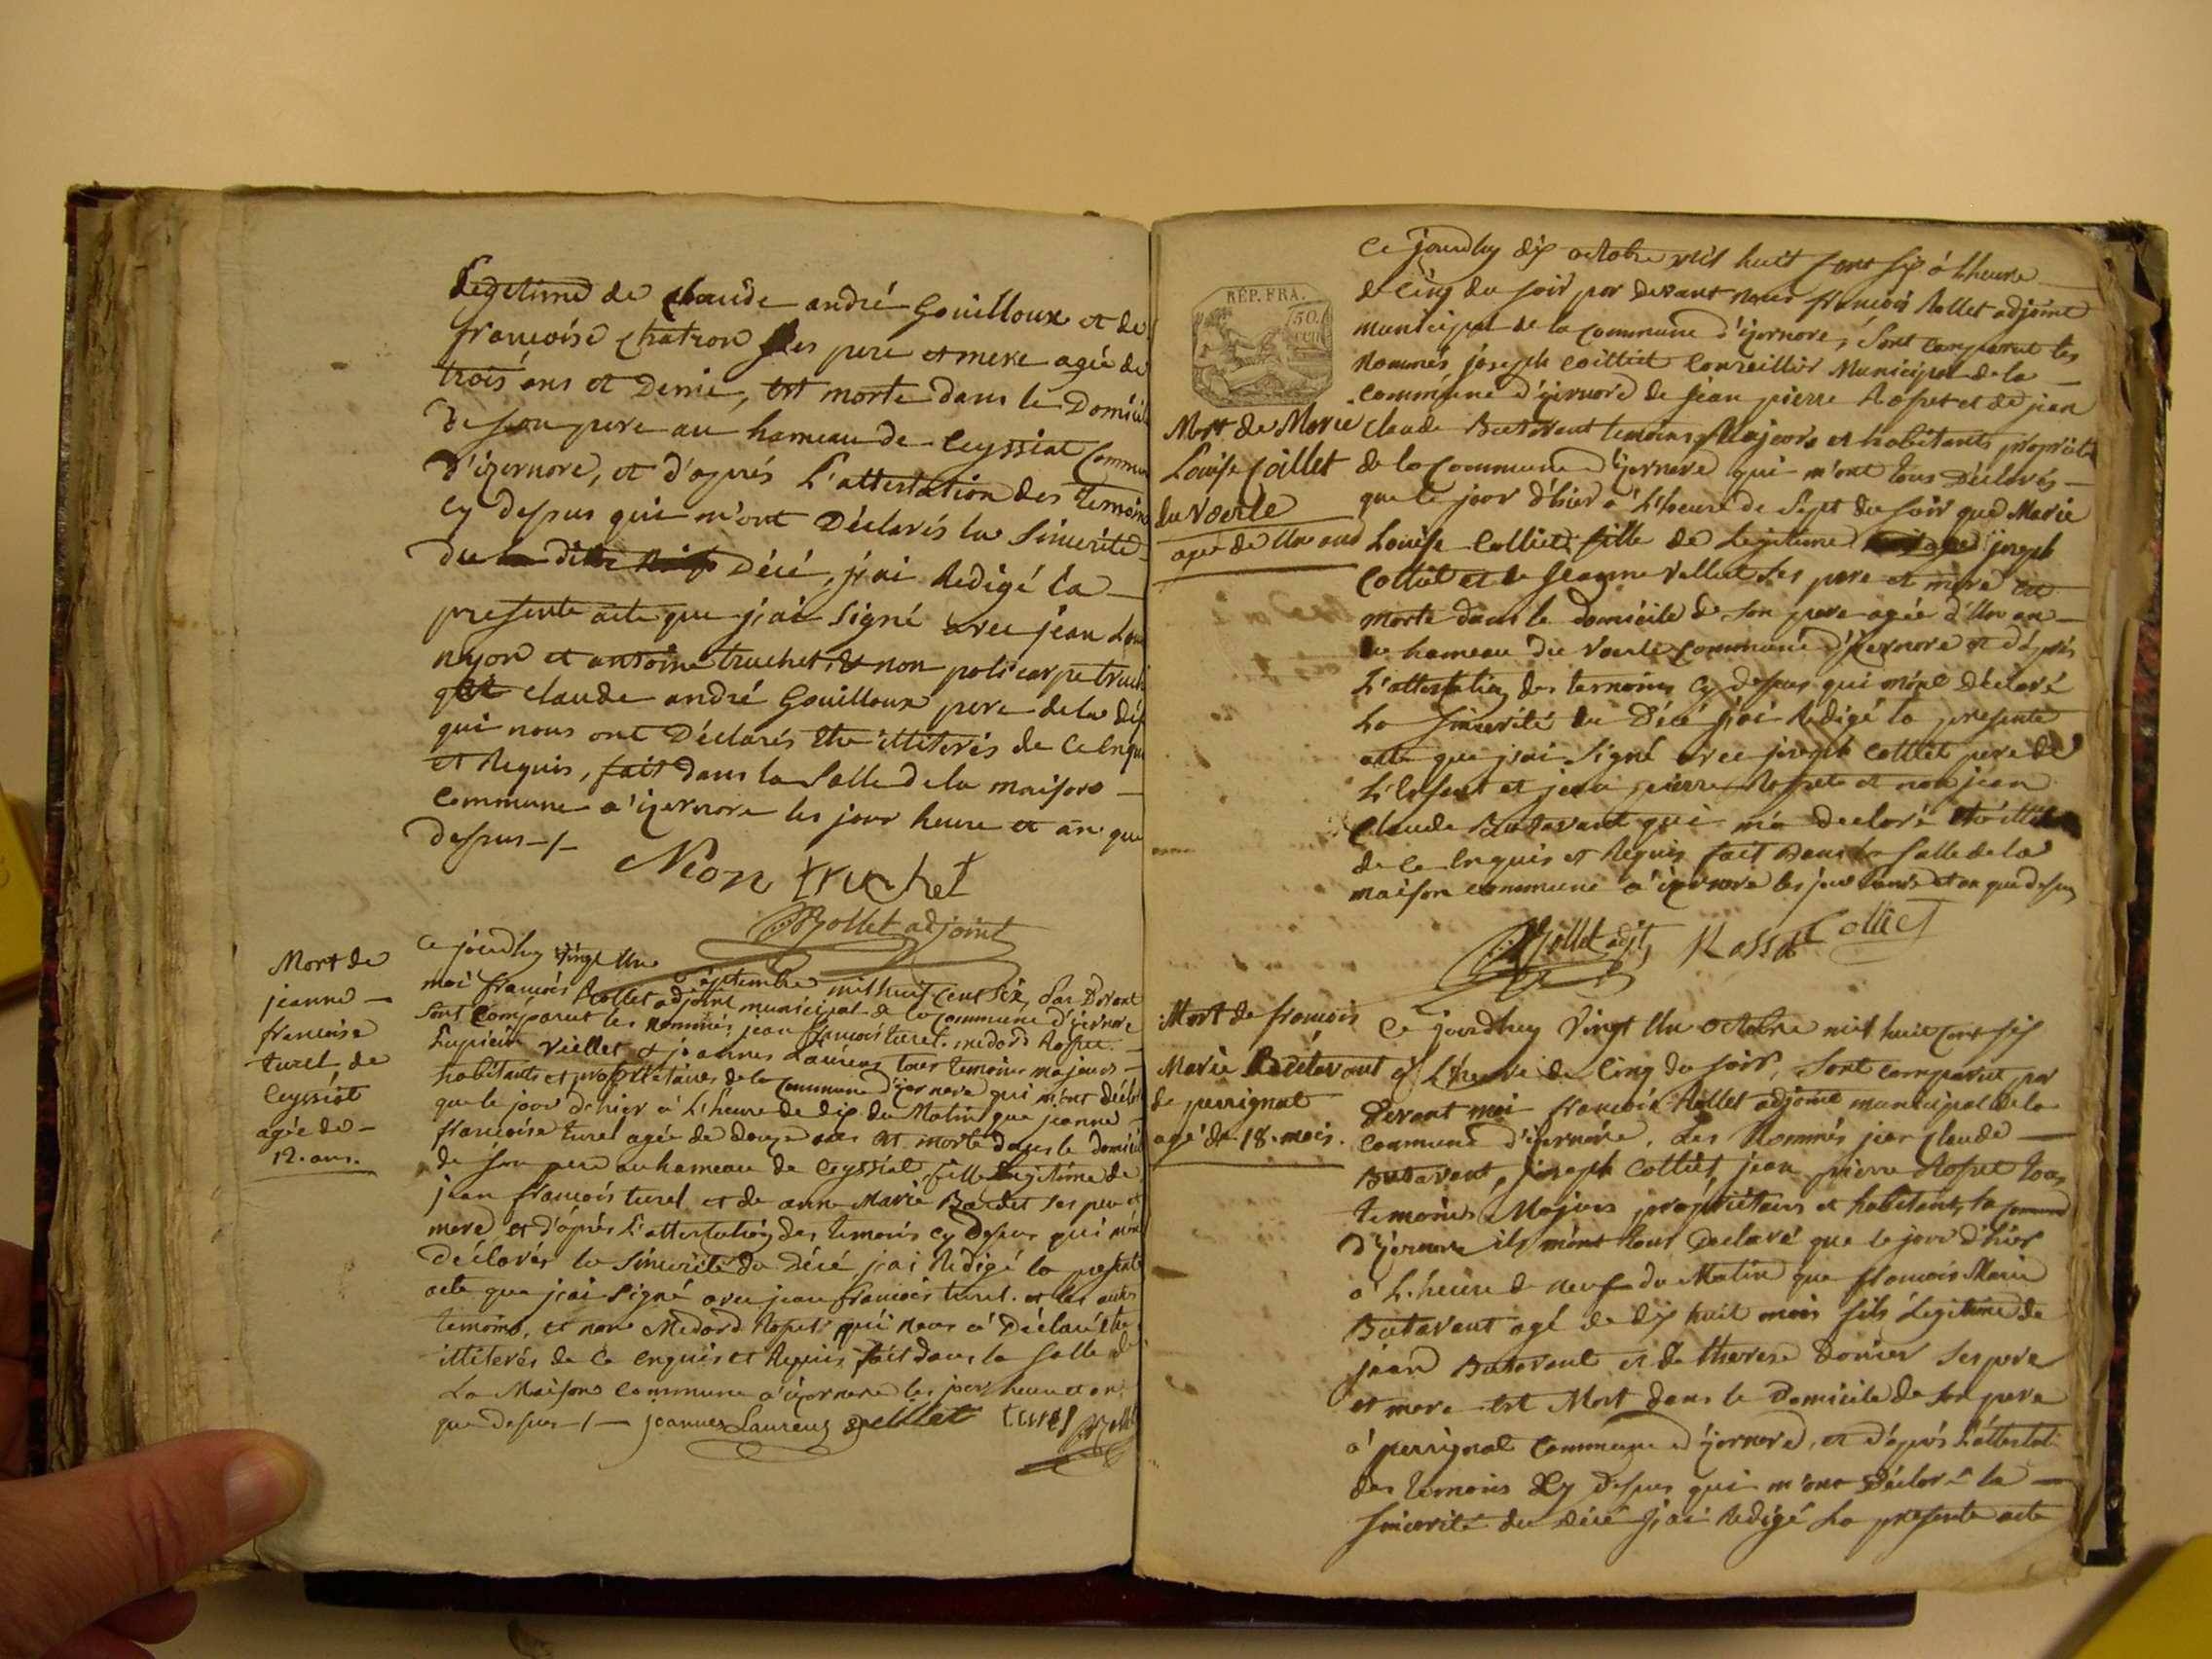 Legitime de Claude andré Gouilloux et de
francoise chatron ses pere et mere agée de
trois ans et Demie, est morte dans le Domicil
de son pere au hameau de Ceyssiat Commun
d'izernore, et d'aprés L'attestation des temoins
cy dessus qui m'ont Déclarés la Sincerité
du Décé, j'ai Redigé la
presente acte que j'ai Signé avec jean
et antoine truchet, & non policarpe
Claude andré Gouilloux pere de la
qui nous ont Déclarés Etre illiterés de Ce Enqu
et Requis, fait dans la Salle de la maison
Commune a izernore les jour heure et an que
dessus -/-
Nion truchet
Rollet adjoint
Mort de
jeanne
francoise
turel de
Ceyssiat
agée de
12. ans.
Ce jourdhuy vingt Un
Septembre mil huit Cent Six, Par Devant
moi francois Rollet adjoint municipal de la Commune d'izernore
Sont Comparut les nommés jean francois turel. medard Rosset
Viellet & joannes Laurens tous temoins majeurs
habitants et proprietaires de la Commune d'izernore qui m'ont déclar
que le jour d'hier à L'heure de dix du Matin que jeanne
francoise turel agée de douze ans est morte dans le domicil
de son pere au hameau de Ceyssiat, fille Legitime de
jean francois turel et de anne Marie Bardet ses pere et
mere, et d'aprés L'attestation des temoins cy dessus qui m'ont
Déclarés la Sincerité du Décé j'ai Redigé la presente
acte que j'ai Signé avec jean francois turel. et les autres
temoins, et non Medard Rosset qui nous à Déclaré etre
illiterés de Ce enquis et Requis, fait dans la Salle de
La Maison Commune a izernore les jour heure et an
que dessus -/- joannes Laurens Viellet turel Rollet
RÉP. FRA.
50.
Ce jourdhuy dix octobre mil huit Cent Six à Lheure
de Cinq du Soir par devant nous francois Rollet adjoint
municipal de la Commune d'izernore, Sont Comparut les
Nommés joseph Colliet Conseiller Municipal de la
Commune d'izernore de jean pierre Rosset et de jean
Mort de Marie
Louise Colliet
du Voerle
agée de Un and
Claude Butavant temoins Majeurs et habitants propriét
de la Commune d'izernore qui m'ont tous Déclarés
que le jour d'hier à L'heure de Sept du Soir que Marie
Louise Colliet fille de Legitime joseph
Colliet et de jeanne Vellet ses pere et mere est
morte dans le domicile de son pere agée d'Un an
au hameau du Voerle Commune d'izernore et d'aprés
L'attestation des temoins Cy dessus qui m'ont déclaré
La Sincerité du Décé j'ai Redigé la presente
acte que j'ai Signé avec joseph Colliet pere de
L'Enfant et jean pierre Rosset et non jean
Claude Butavant qui m'a declaré
de Ce Enquis et Requis fait dans la Salle de la
maison commune à izernore les jour heure et an que dessus
Rollet adjt, Rosset Colliet
Mort de francois
Marie Butavant
de perignat
agé de 18. mois.
Ce jourdhuy Vingt Un octobre mil huit Cent Six
à L'heure de Cinq du Soir, Sont Comparut par
devant moi francois Rollet adjoint municipal de la
Commune d'izernore, Les Nommés jean Claude
Butavant, joseph Colliet, jean pierre Rosset tous
temoins Majeurs proprietaires et habitants la Commune
d'izernore ils m'ont tous Declaré que le jour d'hier
à L'heure de neuf du Matin que francois Marie
Butavant agé de dix huit mois fils Legitime de
jean Butavant et de therese ses pere
et mere est Mort dans le Domicile de son pere
à perignat Commune d'izernore, et d'aprés L'attestat
des temoins Cy dessus qui m'ont déclaré la
Sincerité du décé j'ai Redigé La presente acte